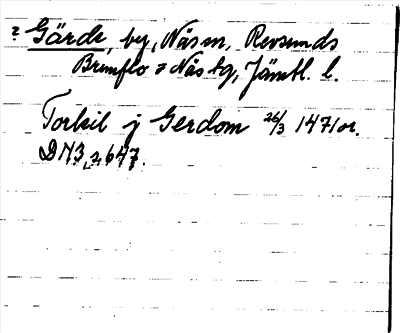 ? Gärde, by, Näs sn, Revsunds
Brunflo o Näs tg, Jämtl. l.
Torkil j Gerdom 26/3 1471 or.
DN 3, s, 647.